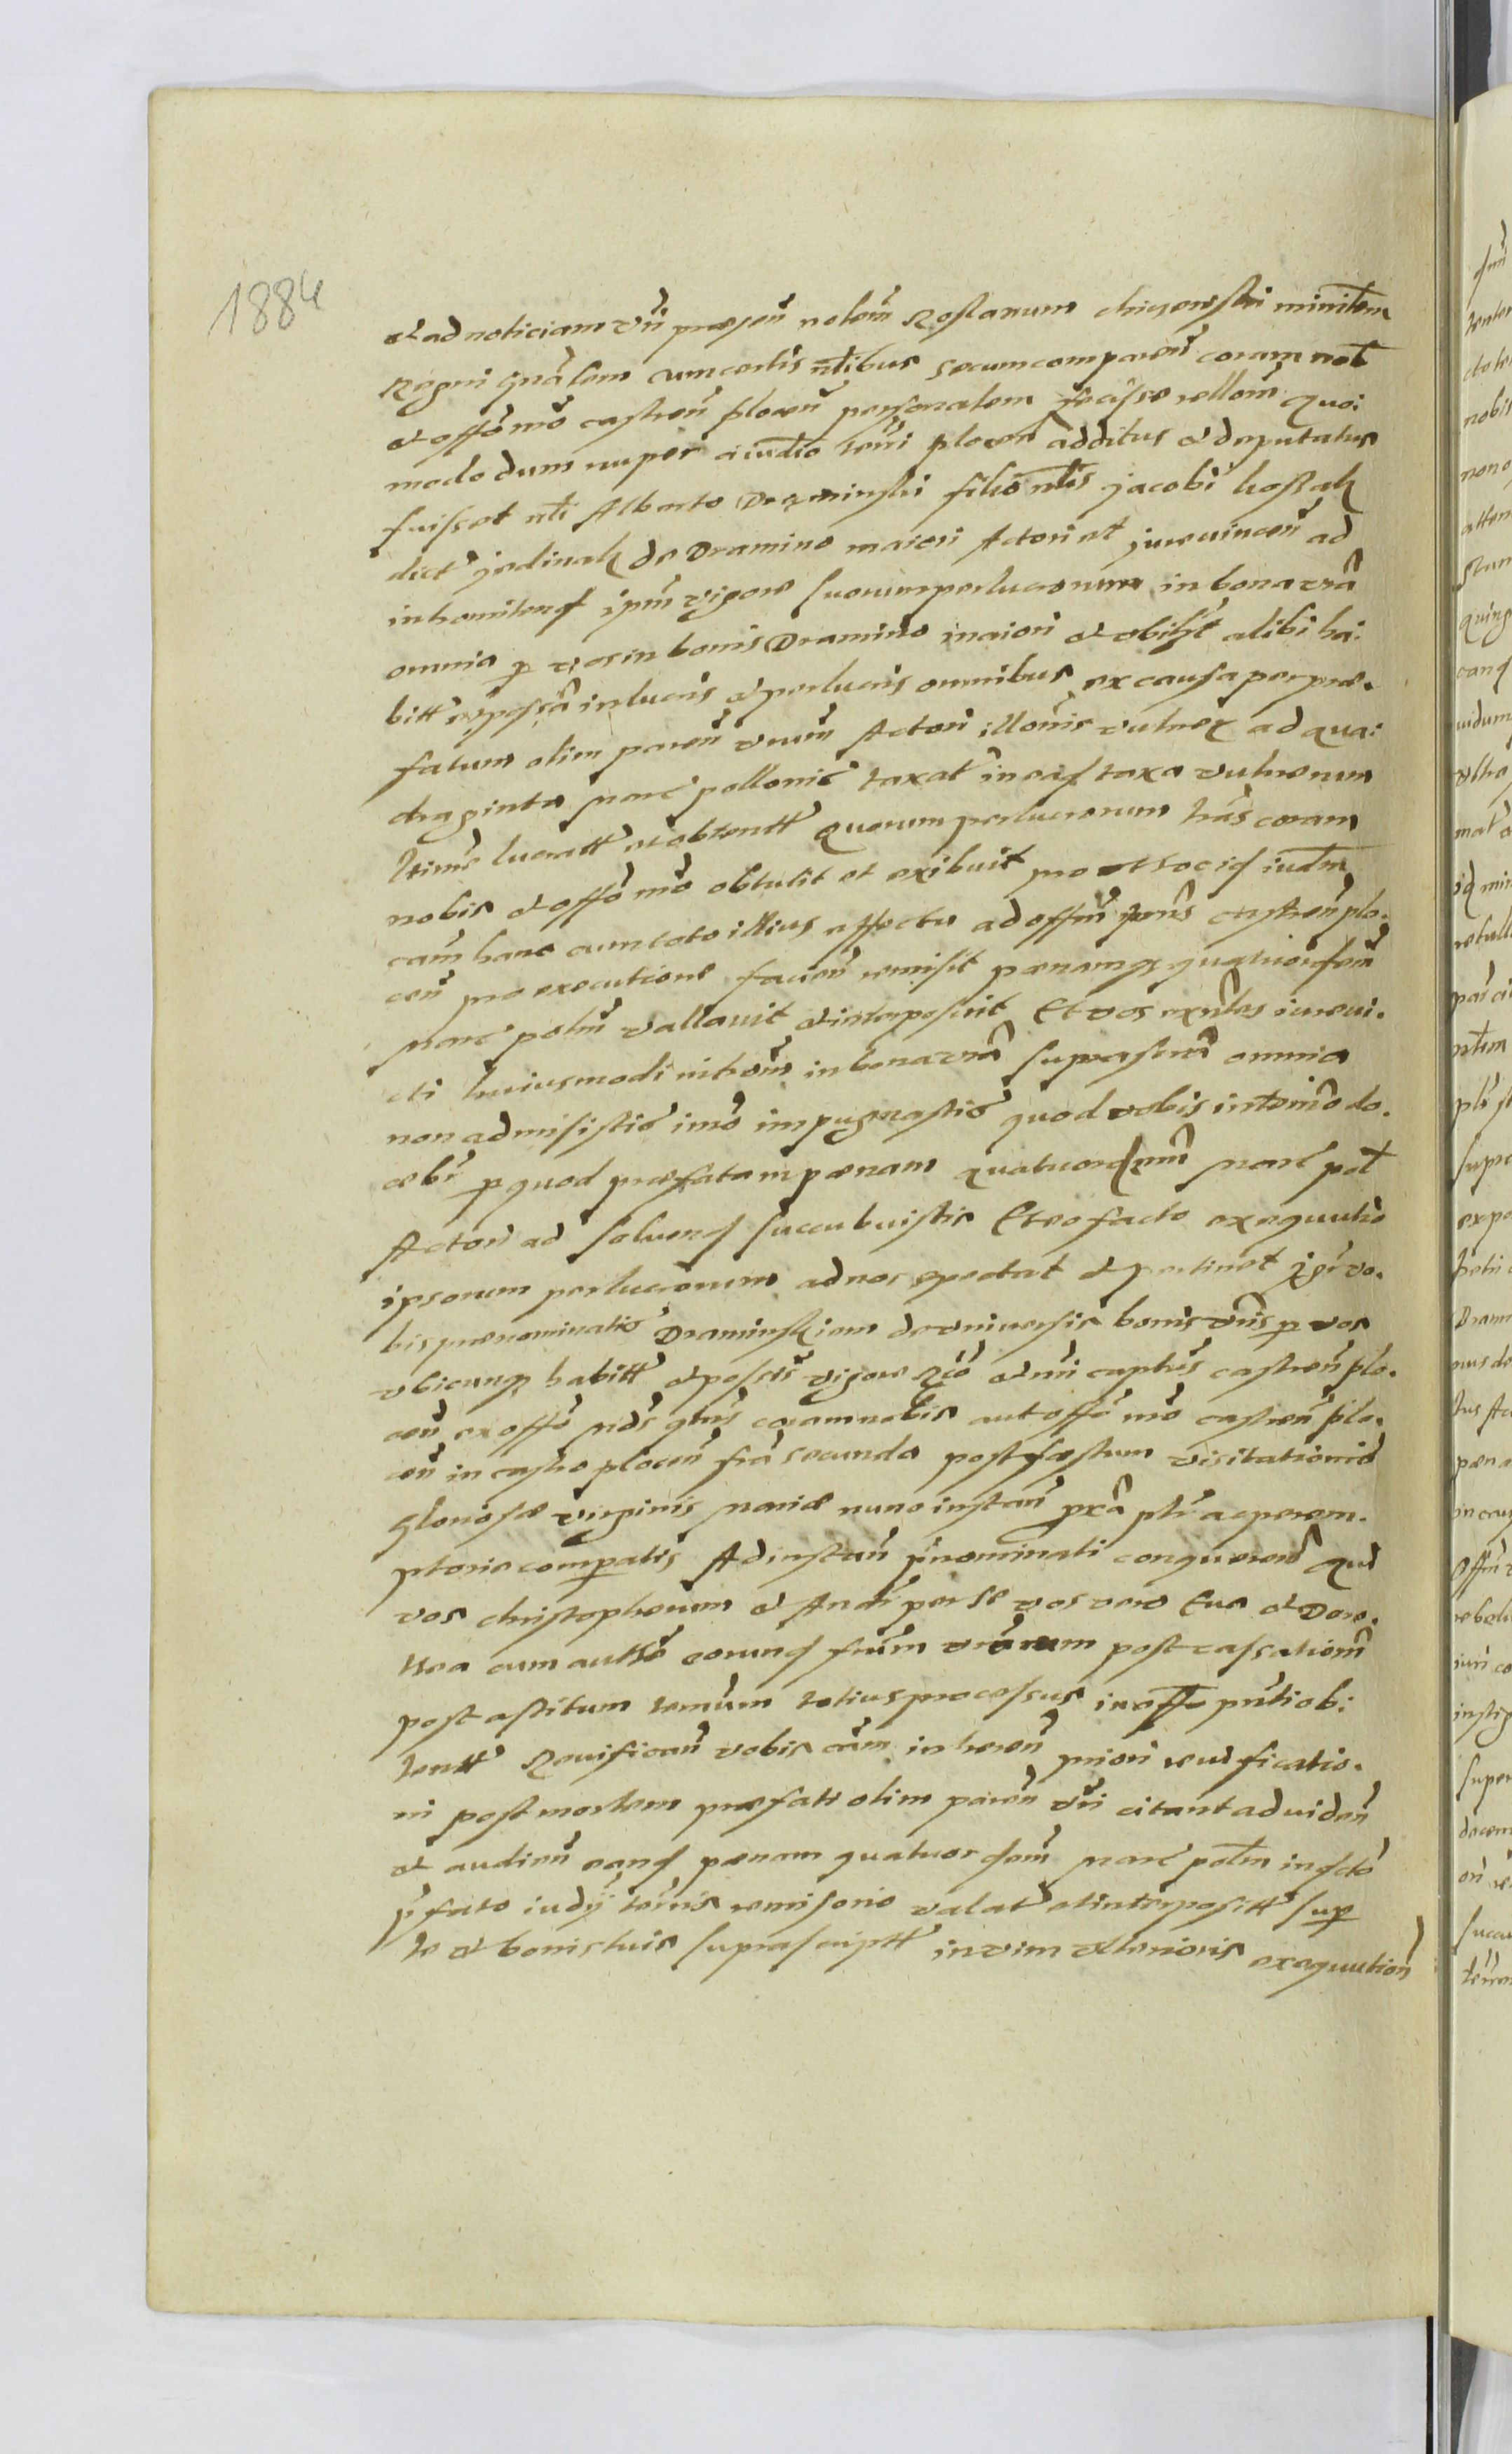 1884
et ad noticiam vri praesen nobilem Rostanum chicenski minilem
Regni gnalem cum certis nlibus secum comparen coram nob
et offo nro castren plocen personalem fecisse rellom Quo:
modo dum nuper a iudio terri plocen additus et deputatus
fuisset nli Alberto Draminski filio nlis Jacobi kostak
dict jedinak de Dramino maiori Actori et jurevincen ad
intromitend ipm vigore suorum perlucrorum in bona vra
omnia p vos in bonis Dramino maiori et ubilibet alibi ha:
bitt et possa in lucris et perlucris omnibus ex causa per prae.
fatum olim paren vrum Actori illoris vulner ad qua:
draginta marc pollonic taxat in eisd taxa vulnerum
ltime lucratt et obtentt Quorum perlucrorum lras coram
nobis et offo nro obtulit et exibuit pro ut locid iudm
cam hanc cum toto illius effectu ad offm prns castren plo.
cen pro executione facien remisit poenamq quatuordecim
marc polm vallavit et interposuit Et vos exules iurevi.
cti huiusmodi introm in bona vra suprascra omnia
non admisistis imo impugnastis quod vobis in termio do.
cebr p quod praefatam poenam quatuordecim marc pol
Actori ad solvend succubuistis Et eo facto exequutio
ipsorum perlucrorum ad nos spectat et pertinet Igr vo.
bis praenominatis Draminskiem de universis bonis vris p vos
ubicunq habitt et possis vigore Rco et nri captus castren plo.
cen ex offo nds qtus coram nobis aut offo nro castren plo.
cen in castro plocen fra secunda post festum visitationis
gloriosae virginis Mariae nunc instan prxa pltr ac perem.
ptorie comperatis Ad instan pnominati conqueren Qui
vos christopherum et Andr per se vos vero Eva et Doro.
thea cum autto eorund frum vrorum post cassationm
post astitum termum totius processus in offo prnti ob:
tentt Revifican vobis cam inheren priori reuificatio.
ni post mortem praefati olim paren vri citant ad viden
et audien eand poenam quatuordecim marc polm in dcto
pfato iudy terris remisorio valat et interpositt sup
te et bonis tuis suprascriptt in vim ulterioris exequution